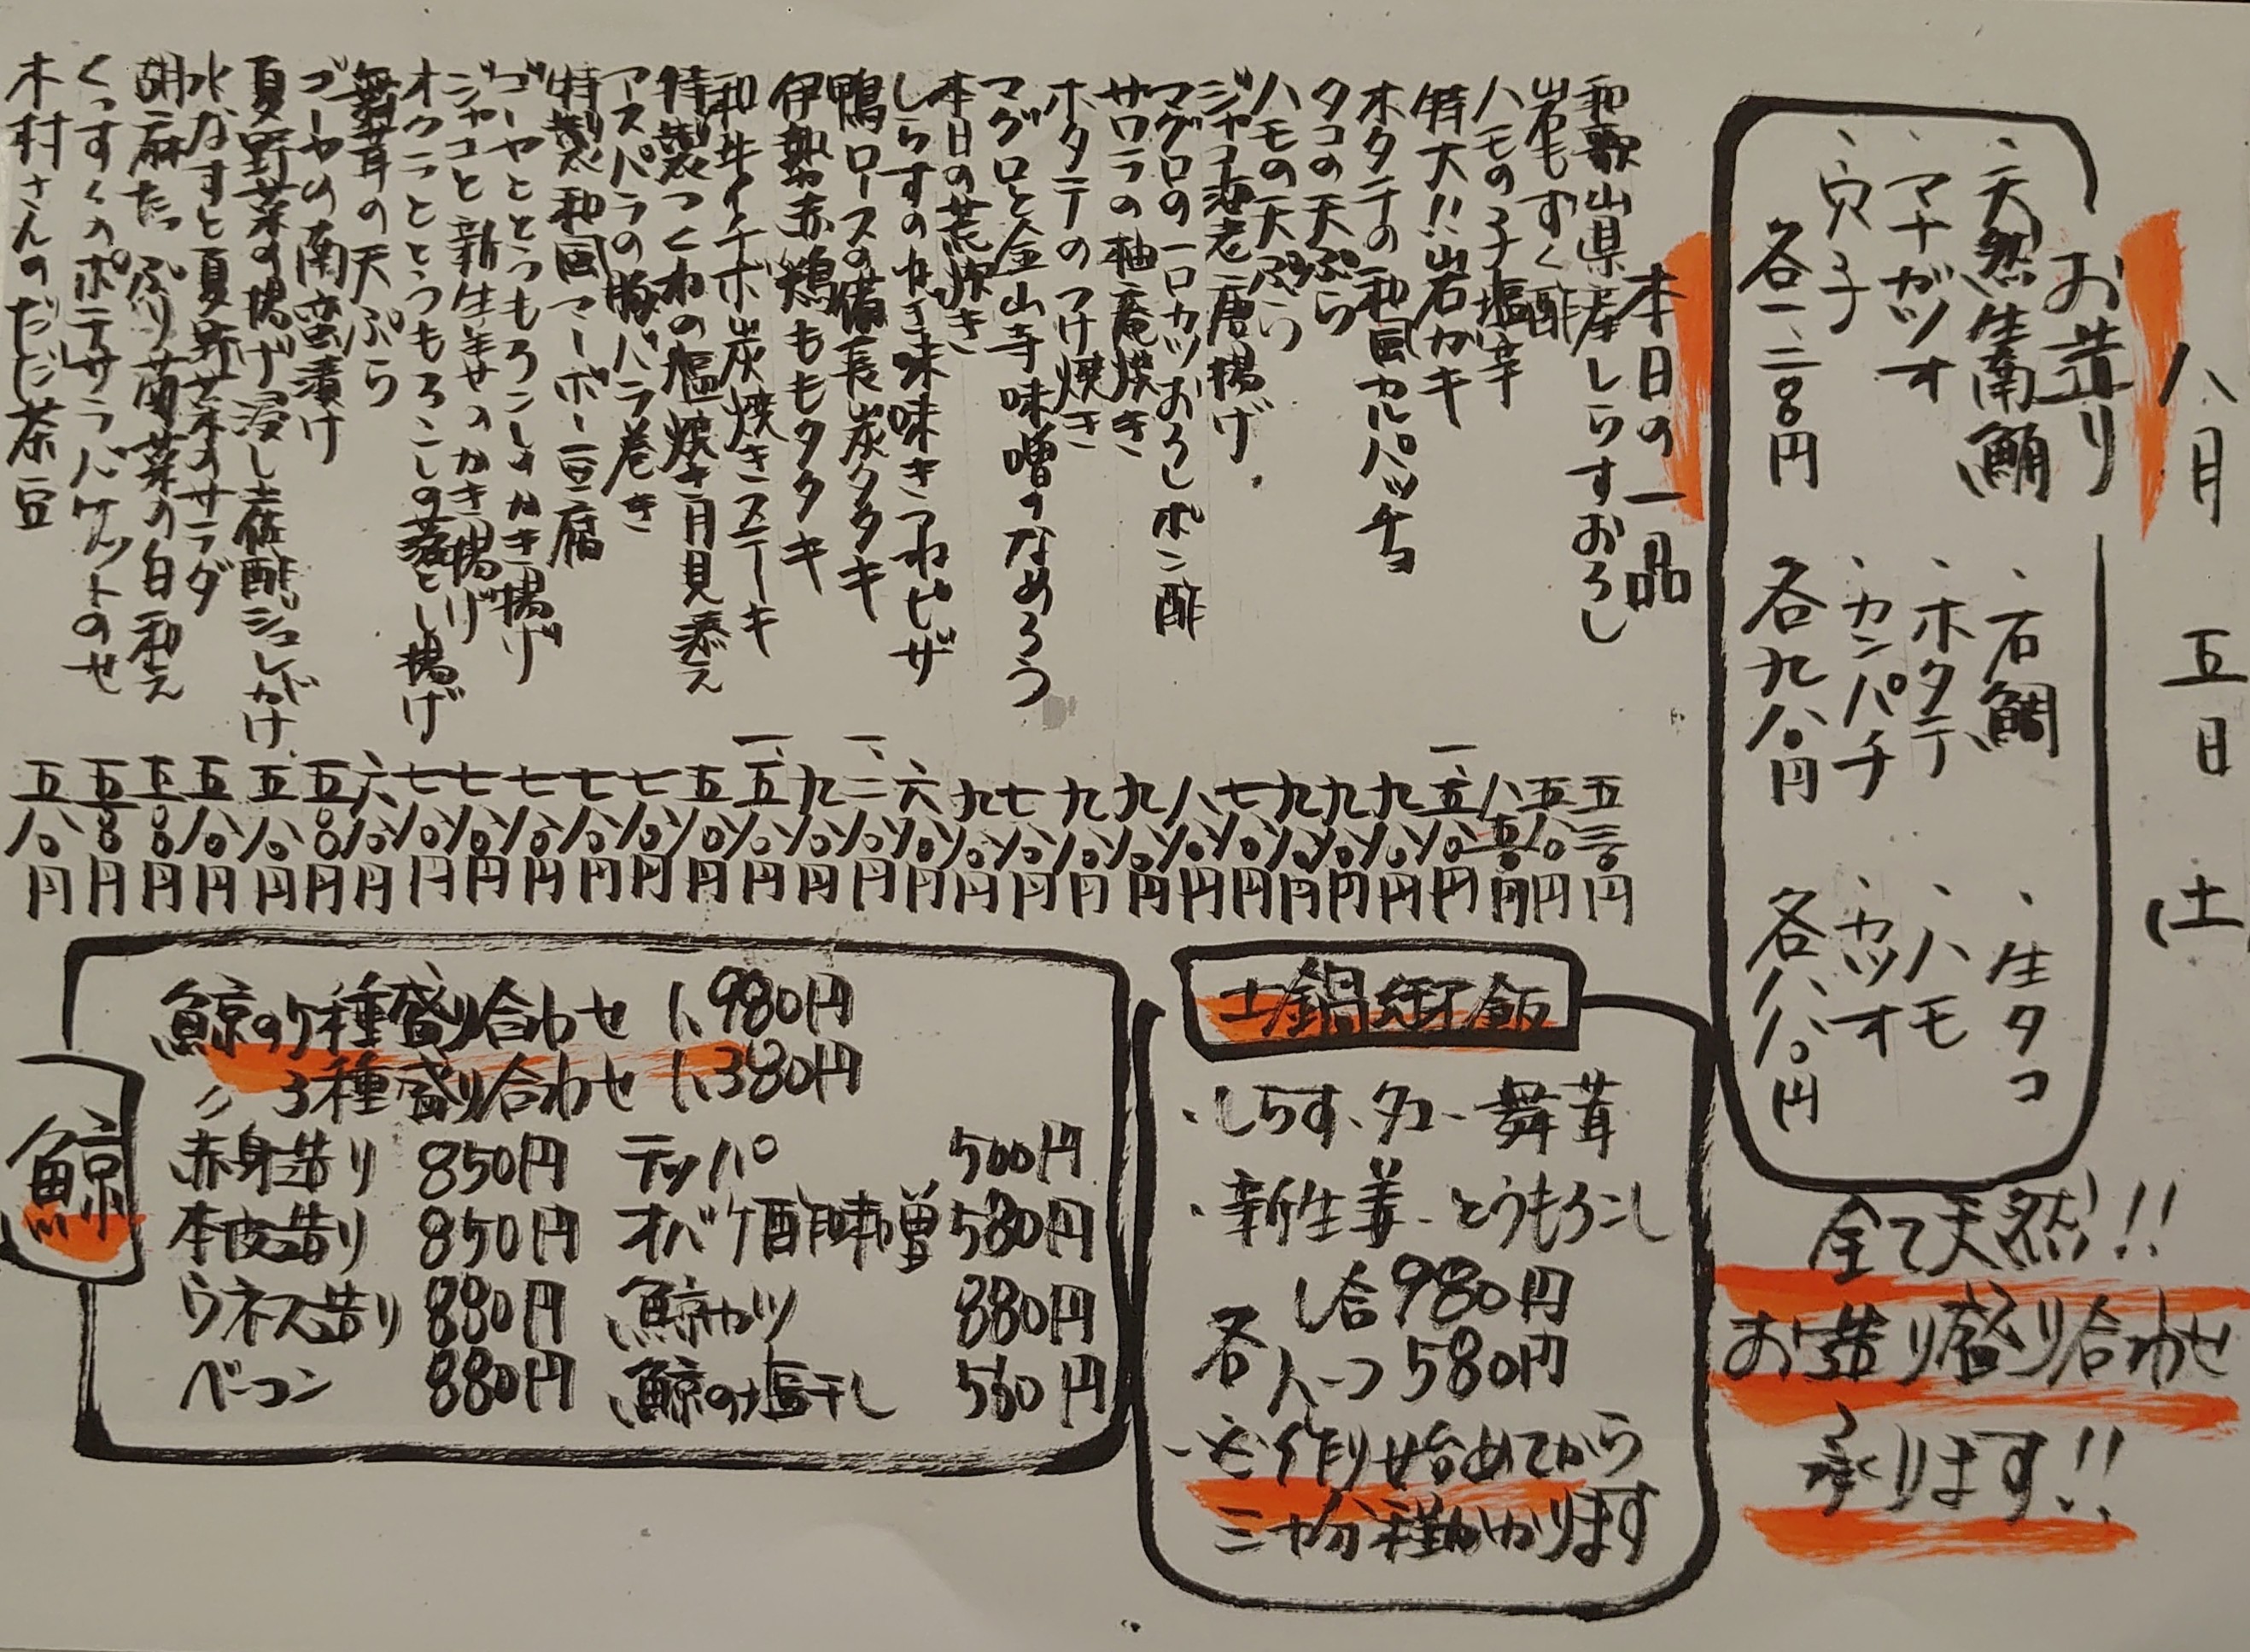 八月 五日 (土)
お造り
・天然生南鮪
・マナガツオ
・穴子
各一、二〇〇円
・石鯛
・ホタテ
・カンパチ
各九八〇円
・生タコ
・ハモ
・カツオ
各八八〇円
全て天然!!
お造り盛り合わせ
承ります!!
本日の一品
和歌山県産しらすおろし 五三〇円
岩もずく酢 五八〇円
ハモの子塩辛 八五〇円
特大!!岩カキ 一、五八〇円
ホタテの和風カルパッチョ 九八〇円
タコの天ぷら 九八〇円
ハモの天ぷら 九八〇円
ジャコ海老唐揚げ 七八〇円
マグロの一口カツおろしポン酢 八八〇円
サワラの柚庵焼き 九八〇円
ホタテのつけ焼き 九八〇円
マグロと金山寺味噌のなめろう 七八〇円
本日の荒炊き 九八〇円
しらすのねぎ味味きつねピザ 六八〇円
鴨ロースの備長炭タタキ 一、二八〇円
伊勢赤鶏ももタタキ 九八〇円
和牛イチボ炭焼きステーキ 一、五八〇円
特製つくねの塩焼き月見添え 五八〇円
アスパラの豚バラ巻き 七八〇円
特製和風マーボー豆腐 七八〇円
ゴーヤととうもろこしのかき揚げ 七八〇円
ジャコと新生姜のかき揚げ 七八〇円
オクラととうもろこしの落とし揚げ 七八〇円
舞茸の天ぷら 六八〇円
ゴーヤの南蛮漬け 五〇〇円
夏野菜の揚げ浸し土佐酢ジュレがけ 五八〇円
水なすと夏野菜のサラダ 五八〇円
胡麻たっぷり菊菜の白和え 五五〇円
くっすくのポテサラバケットのせ 五五〇円
木村さんのだだ茶豆 五八〇円
土鍋御飯
・しらす・タコ・舞茸
・新生姜・とうもろこし
各 一合980円
八一つ580円
・※作り始めてから
三十分程かかります
鯨
鯨の7種盛り合わせ 1,980円
〃 3種盛り合わせ 1,380円
赤身造り 850円 テッパ 500円
本皮造り 850円 オバケ酢味噌 580円
ウネス造り 880円 鯨カツ 880円
ベーコン 880円 鯨の塩干し 580円